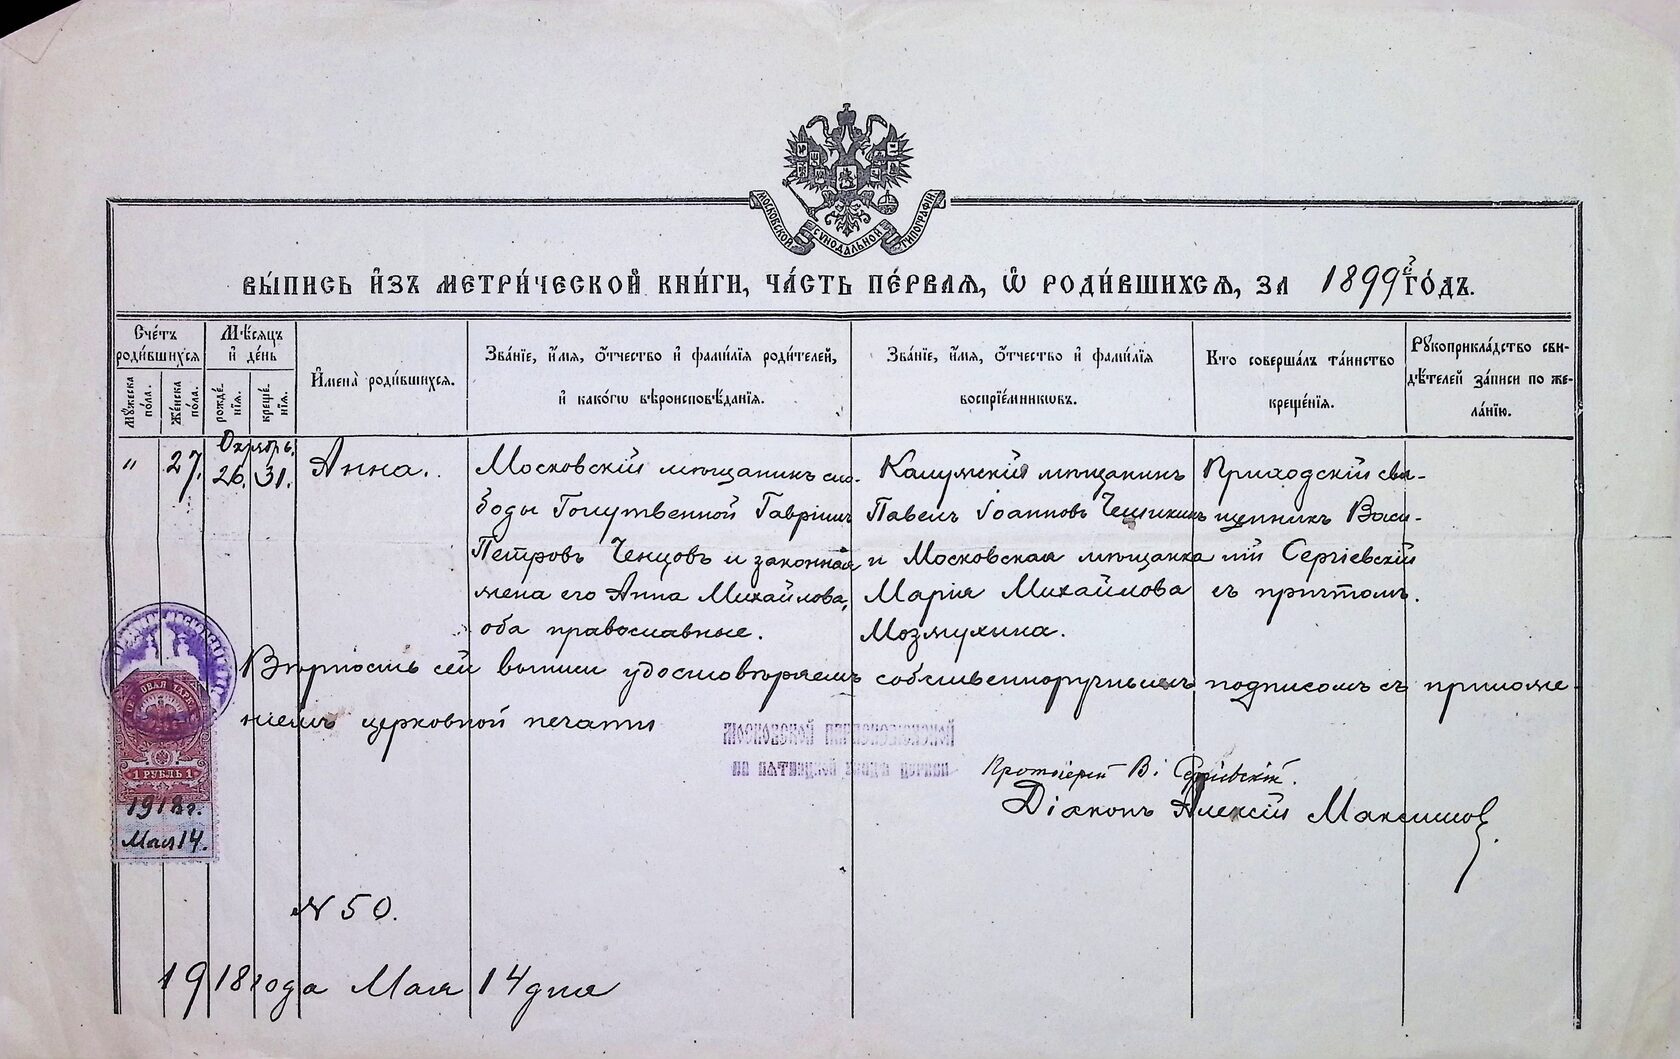 МОСКОВСКОЙ СѴНОДАЛЬНОЙ ТИПОГРАФІИ.
ВЫ́ПИСЬ И҆ЗЪ МЕТРИ́ЧЕСКОЙ КНИ́ГИ, ЧА́СТЬ ПЕ́РВАѦ, Ѡ҆ РОДИ́ВШИХСѦ, ЗА 1899 е҆ ГО́ДЪ.
Сче́тъ роди́вшихсѧ
Мѣ́сѧцъ и҆ де́нь
И҆мена̀ роди́вшихсѧ.
Зва́нїе, и҆́мѧ, ѻ҆́тчество и҆ фами́лїѧ роди́телей, и҆ како́гѡ вѣроисповѣ́данїѧ.
Зва́нїе, и҆́мѧ, ѻ҆́тчество и҆ фами́лїѧ воспрїе́мниковъ.
Кто̀ соверша́лъ та́инство креще́нїѧ.
Рꙋкоприкла́дство сви-
дѣ́телей за́писи по же-
ла́нїю.
Мꙋ́жеска по́ла.
Же́нска по́ла.
рожде́нїѧ.
креще́нїѧ.
Октябрь.
" 27. 26. 31. Анна.
Московскій мѣщанинъ сло-
боды Голутвенной Гавріилъ
Петровъ Ченцовъ и законная
жена его Анна Михайлова,
оба православные.
Калужскій мѣщанинъ
Павелъ Іоанновъ
и Московская мѣщанка
Марія Михайлова
Мозжухина.
Приходскій свя-
щенникъ Васи-
лій Сергіевскій
съ причтомъ.
Вѣрность сей выписи удостовѣряемъ собственноручнымъ подписомъ съ приложе-
ніемъ церковной печати
Протоіерей В. Сергіевскій.
Діаконъ Алексій Максимов.
1 РУБЛЬ 1
1918 г.
Мая 14.
N 50.
1918 года Мая 14 дня